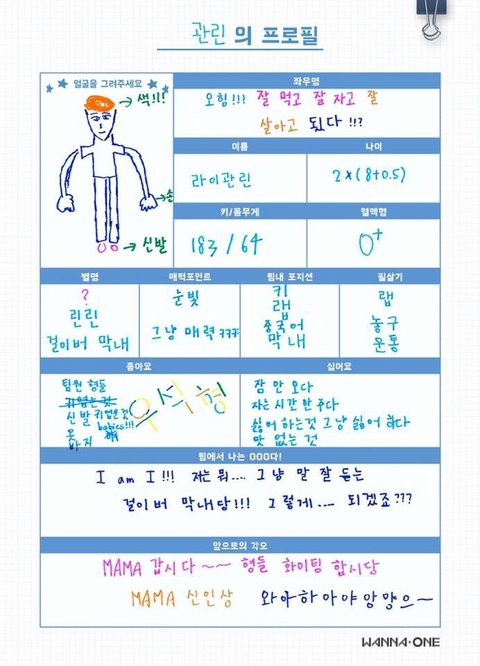 관린의 프로필
얼굴을 그려주세요
→ 색!!!
→ 손
→ 신발
좌우명
오힘!!! 잘 먹고 잘 자고 잘
살아고 되다!!!
이름
라이관린
나이
2×(8+0.5)
키/몸무게
183/64
혈액형
O+
별명
?
린린
걸이버 막내
매력포인트
눈빛
그냥 매력 ㅋㅋㅋ
팀내 포지션
키
랩
중국어
막내
필살기
랩
농구
운통
좋아요
팀원 형들
귀엽는 것
신발 귀엽은 것
babies!!!
옷
바지
우석형
싫어요
잠 안 오다
자는 시간 안 주다
싫어 하는것 그냥 싫어 하다
맛 없는 것
팀에서 나는 OOO다!
I am I!!! 저는 뭐.... 그냥 말 잘 듣는
걸이버 막내당!!! 그렇게.... 되겠죠???
앞으로의 각오
MAMA 갑시다~~ 형들 화이팅 합시당
MAMA 신인상 와아하아야앙망으~
WANNA·ONE